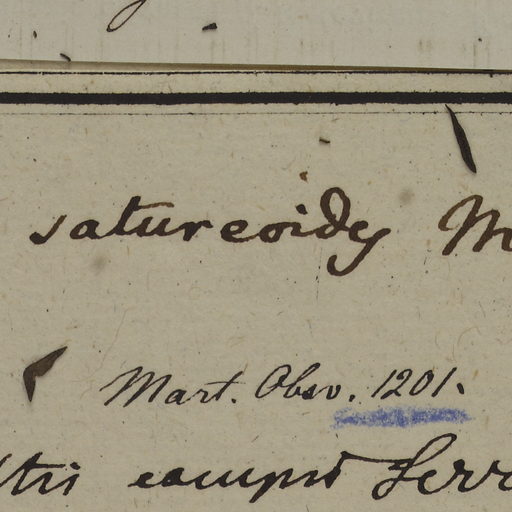 satureoides M
Mart. Obsv. 1201.
campis Serr